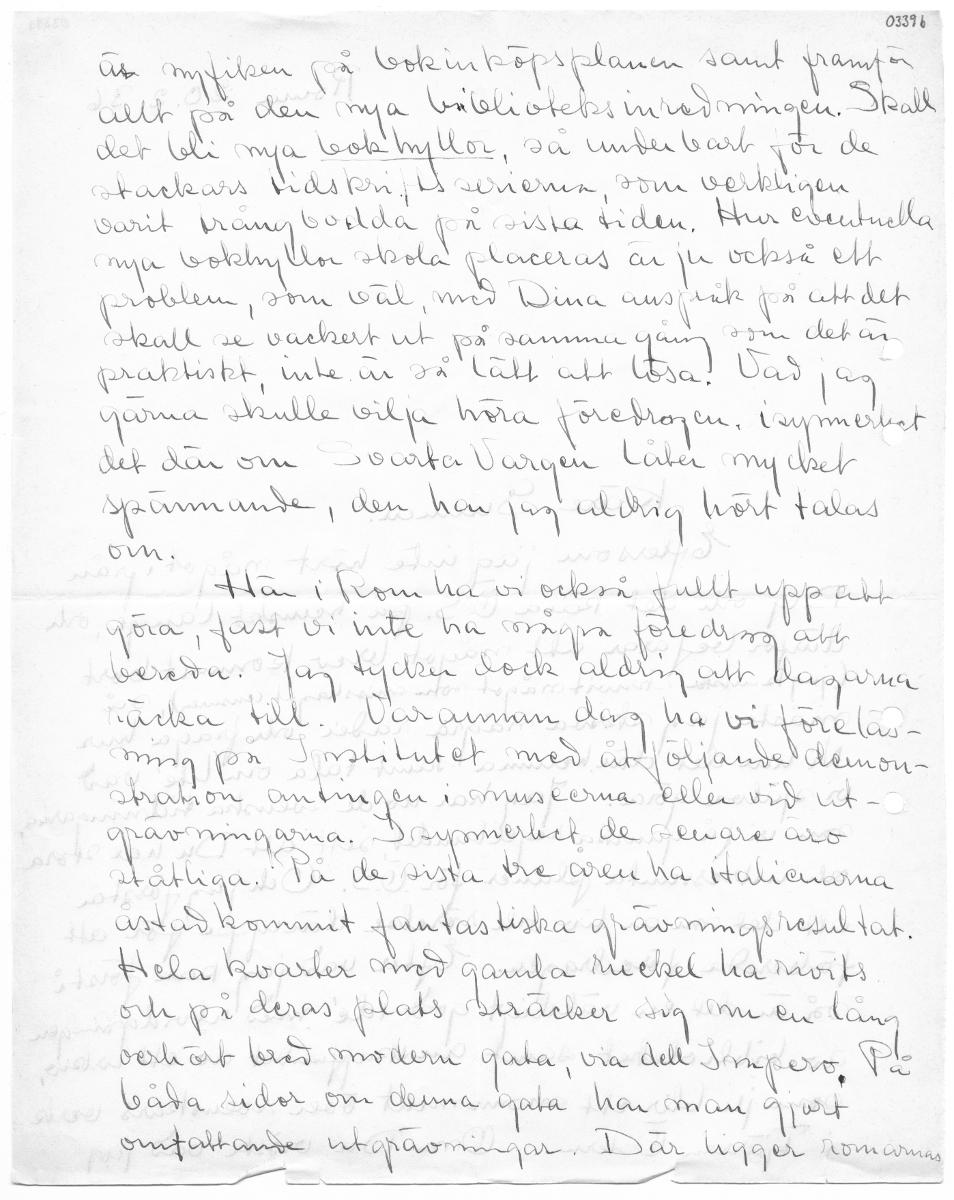 03396
är nyfiken på bokinköpsplanen samt framför
allt på den nya biblioteksinredningen. Skall
det bli nya bokhyllor, så underbart för de
stackars tidskriftsserierna, som verkligen
varit trångbodda på sista tiden. Hur eventuella
nya bokhyllor skola placeras är ju också ett
problem, som väl, med Dina anspråk på att det
skall se vackert ut på samma gång som det är
praktiskt, inte är så lätt att lösa. Vad jag
gärna skulle vilja höra föredragen, isynnerhet
det där om Svarta Vargen låter mycket
spännande, den har jag aldrig hört talas
om.
Här i Rom ha vi också fullt upp att
göra, fast vi inte ha några föredrag att
bereda. Jag tycker dock aldrig att dagarna
räcka till. Varannan dag ha vi föreläs-
ning på Institutet med åtföljande demon-
stration antingen i museerna eller vid ut-
grävningarna. Isynnerhet de senare äro
ståtliga. På de sista tre åren ha italienarna
åstadkommit fantastiska grävningsresultat.
Hela kvarter med gamla ruckel ha rivits
och på deras plats sträcker sig nu en lång
oerhört bred modern gata, via dell Impero. På
båda sidor om denna gata har man gjort
omfattande utgrävningar. Där ligger romarnas